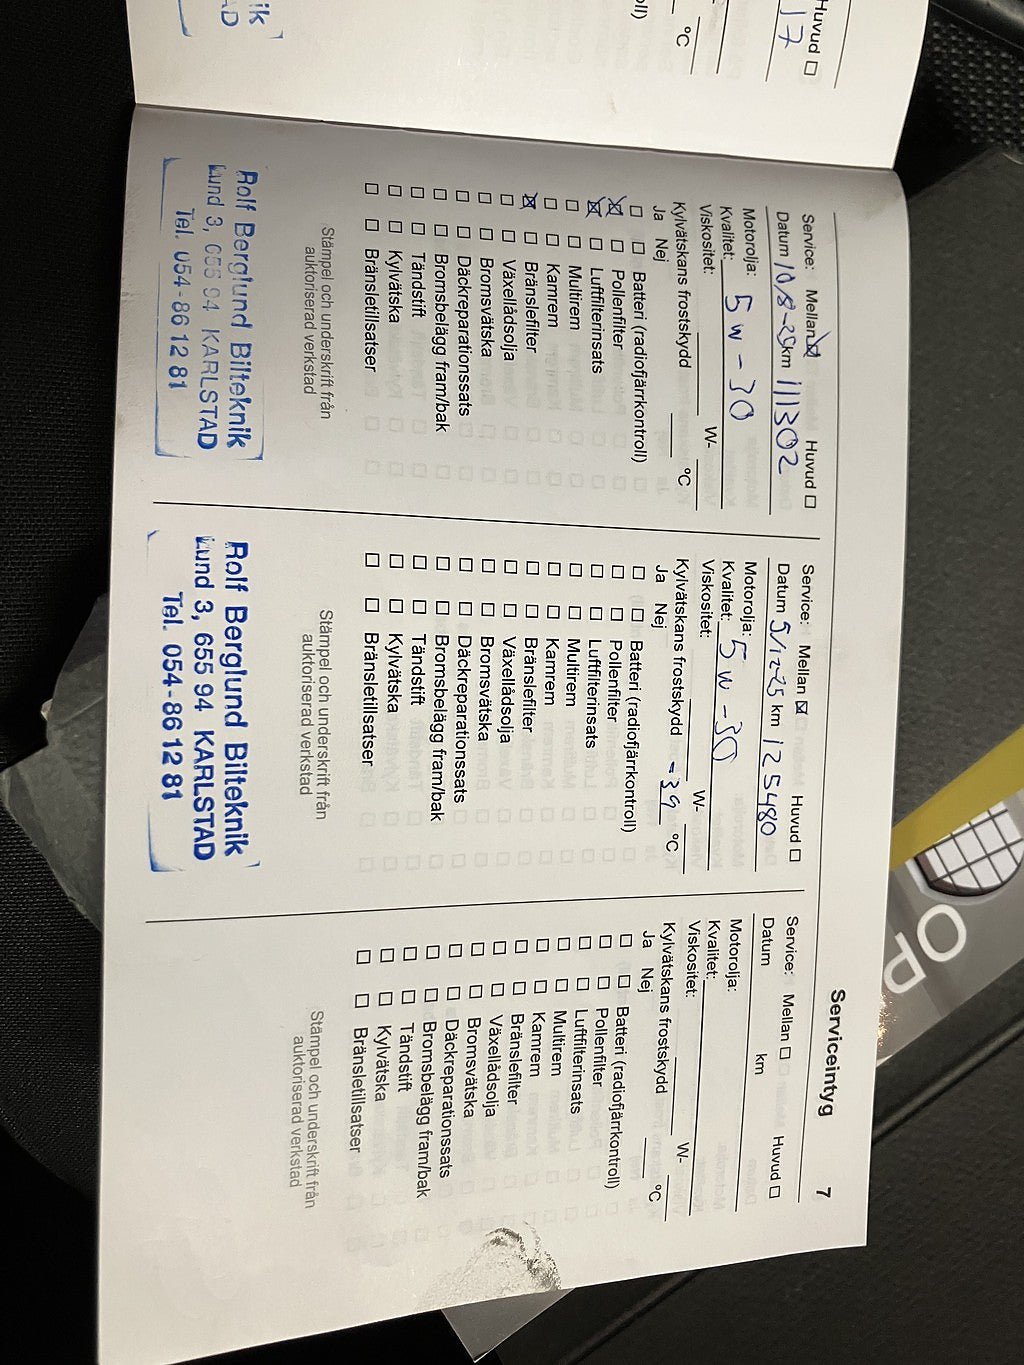 Huvud ☐
17
°C
Serviceintyg 7
Service: Mellan ☒ Huvud ☐
Datum 10/8-25 km 111302
Motorolja:
Kvalitet: 5w-30
Viskositet: W-
Kylvätskans frostskydd °C
Ja Nej
☐ ☐ Batteri (radiofjärrkontroll)
☒ ☐ Pollenfilter
☒ ☐ Luftfilterinsats
☐ ☐ Multirem
☐ ☐ Kamrem
☒ ☐ Bränslefilter
☐ ☐ Växellådsolja
☐ ☐ Bromsvätska
☐ ☐ Däckreparationssats
☐ ☐ Bromsbelägg fram/bak
☐ ☐ Tändstift
☐ ☐ Kylvätska
☐ ☐ Bränsletillsatser
Stämpel och underskrift från
auktoriserad verkstad
Rolf Berglund Bilteknik
Lund 3, 655 94 KARLSTAD
Tel. 054-86 12 81
Service: Mellan ☒ Huvud ☐
Datum 5/12-25 km 125480
Motorolja:
Kvalitet: 5w-30
Viskositet: W-
Kylvätskans frostskydd -39 °C
Ja Nej
☐ ☐ Batteri (radiofjärrkontroll)
☐ ☐ Pollenfilter
☐ ☐ Luftfilterinsats
☐ ☐ Multirem
☐ ☐ Kamrem
☐ ☐ Bränslefilter
☐ ☐ Växellådsolja
☐ ☐ Bromsvätska
☐ ☐ Däckreparationssats
☐ ☐ Bromsbelägg fram/bak
☐ ☐ Tändstift
☐ ☐ Kylvätska
☐ ☐ Bränsletillsatser
Stämpel och underskrift från
auktoriserad verkstad
Rolf Berglund Bilteknik
Lund 3, 655 94 KARLSTAD
Tel. 054-86 12 81
Service: Mellan ☐ Huvud ☐
Datum km
Motorolja:
Kvalitet:
Viskositet: W-
Kylvätskans frostskydd °C
Ja Nej
☐ ☐ Batteri (radiofjärrkontroll)
☐ ☐ Pollenfilter
☐ ☐ Luftfilterinsats
☐ ☐ Multirem
☐ ☐ Kamrem
☐ ☐ Bränslefilter
☐ ☐ Växellådsolja
☐ ☐ Bromsvätska
☐ ☐ Däckreparationssats
☐ ☐ Bromsbelägg fram/bak
☐ ☐ Tändstift
☐ ☐ Kylvätska
☐ ☐ Bränsletillsatser
Stämpel och underskrift från
auktoriserad verkstad
OP